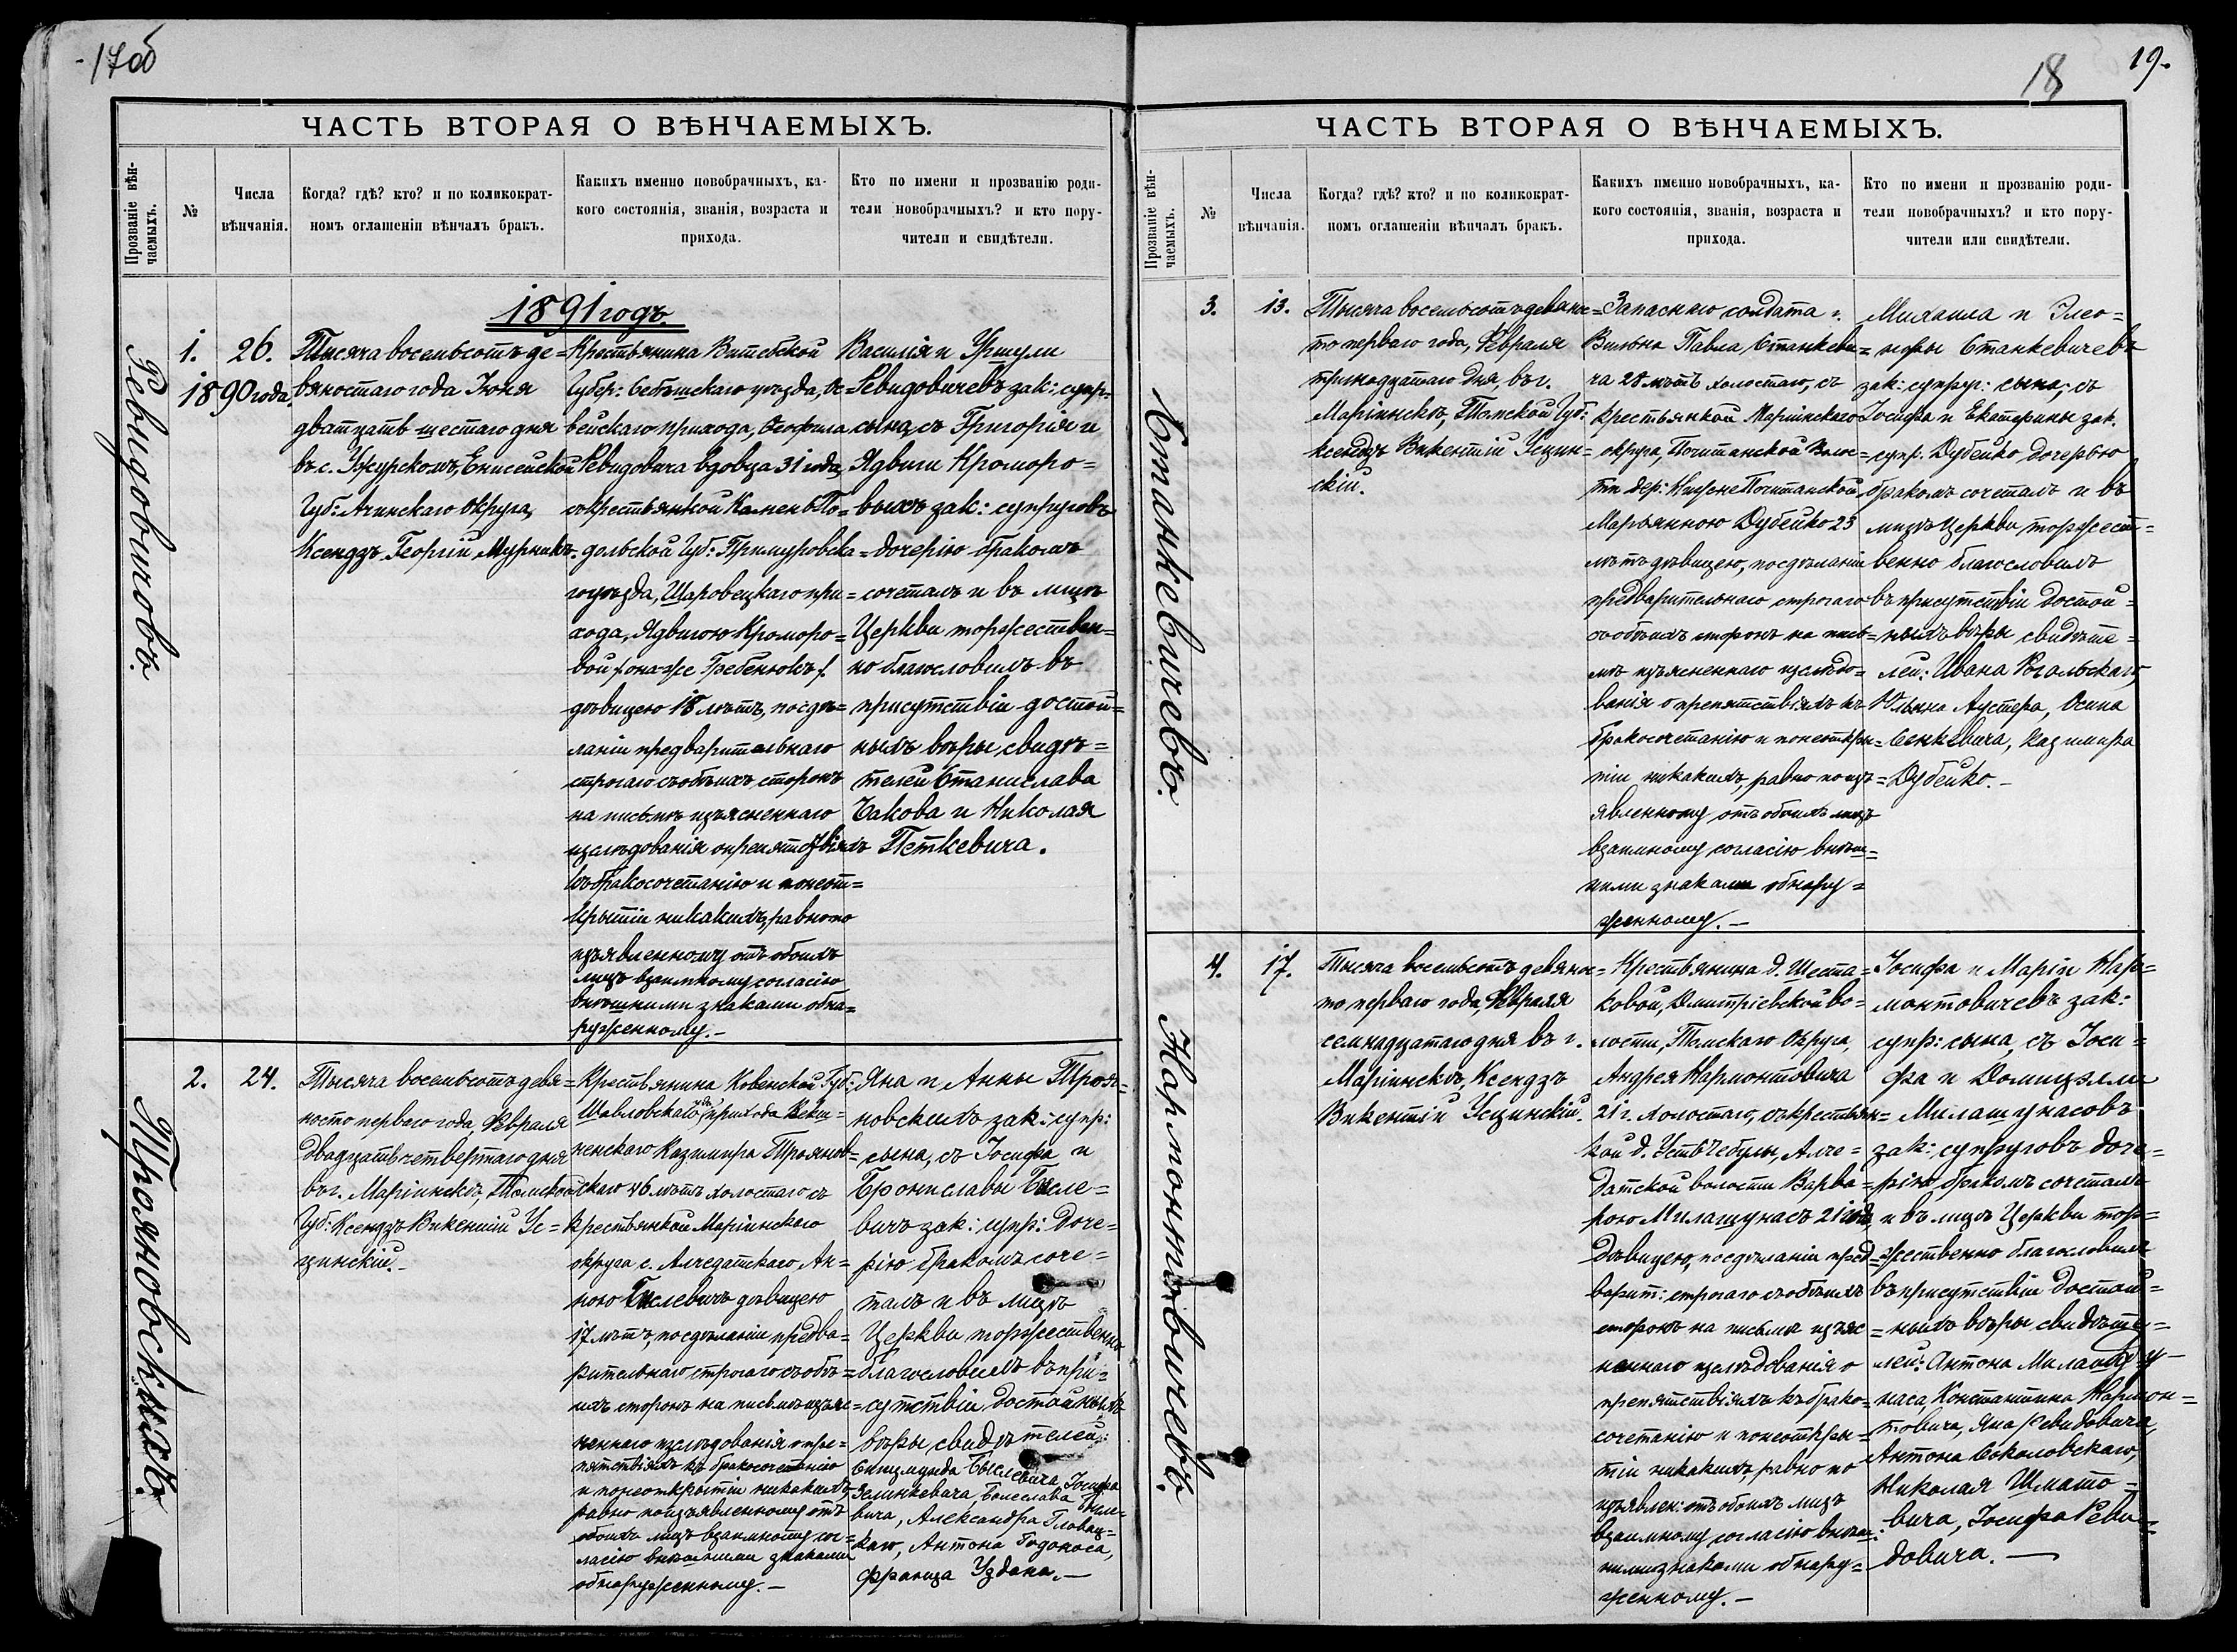 17об
ЧАСТЬ ВТОРАЯ О ВѢНЧАЕМЫХЪ.
Прозваніе вѣн-
чаемыхъ.
№
Числа
вѣнчанія.
Когда? гдѣ? кто? и по коликократ-
номъ оглашеніи вѣнчалъ бракъ.
Какихъ именно новобрачныхъ, ка-
кого состоянія, званія, возраста и
прихода.
Кто по имени и прозванію роди-
тели новобрачныхъ? и кто пору-
чители и свидѣтели.
1891 годъ.
Ревидовичовъ.
1.
26.
1890 года.
Тысяча восемьсотъ де=
вяностаго года Іюня
дватцать шестаго дня
въ с. Ужурскомъ, Енисейской
Губ: Ачинскаго округа,
Ксендзъ Георгій Мурникъ.
Крестьянина Витебской
Губер: Себѣжскаго уѣзда,
вейскаго прихода, Теофила
Ревидовича вдовца 31 года,
съ крестьянкой Камень По=
дольской Губ:
го уѣзда, Шаровецкаго при=
хода, Ядвигою Кроморо=
вой /она же Гребенюкъ/
дѣвицею 18 лѣтъ, посдѣ=
ланіи предварительнаго
строгаго съ обѣихъ сторонъ
на письмѣ изъясненнаго
изслѣдованія о препятствіяхъ
къ бракосочетанію и понеот=
крытіи никакихъ, равно по
изъявленному отъ обоихъ
лицъ взаимному согласію
внѣшними знаками обна=
руженному.–
Василія и Уршули
Ревидовичевъ зак: супр:
сына, съ Григорія и
Ядвиги Кроморо=
выхъ зак: супруговъ
дочерію бракомъ
сочеталъ и въ лицѣ
Церкви торжествен=
но благословилъ въ
присутствіи достой=
ныхъ вѣры свидѣ=
телей Станислава
Бакова и Николая
Петкевича.
Трояновскихъ.
2.
24.
Тысяча восемьсотъ девя=
носто перваго года, Февраля
двадцать четвертаго дня
въ г. Маріинскѣ, Томской
Губ: Ксендзъ Викентій Ус=
цинскій.–
Крестьянина Ковенской Губ:
Шавловскаго уѣз. прихода Векш=
ненскаго Казимира Трояновс=
скаго 46 лѣтъ холостаго съ
крестьянкой Маріинскаго
округа с. Алчедатскаго Ан=
ною Бислевичъ дѣвицею
17 лѣтъ, посдѣланіи предва=
рительнаго строгаго съ обѣ=
ихъ сторонъ на письмѣ изъяс=
неннаго изслѣдованія о пре=
пятствіяхъ къ бракосочетанію
и понеоткрытіи никакихъ,
равно по изъявленному отъ
обоихъ лицъ взаимному со=
гласію внѣшними знаками
обнаруженному.–
Яна и Анны Троя=
новскихъ зак: супр:
сына, съ Іосифа и
Брониславы Бисле=
вичъ зак: супр: доче=
рію бракомъ соче=
талъ и въ лицѣ
Церкви торжественно
благословилъ въ при=
сутствіи достойныхъ
вѣры свидѣтелей:
Сигизмунда Бислевича, Іосифа
Зелинкевича, Болеслава Бисле=
вича, Александра Гловац=
каго, Антона Годокоса,
Франца Уздана.–
18
19.
ЧАСТЬ ВТОРАЯ О ВѢНЧАЕМЫХЪ.
Прозваніе вѣн-
чаемыхъ.
№
Числа
вѣнчанія.
Когда? гдѣ? кто? и по коликократ-
номъ оглашеніи вѣнчалъ бракъ.
Какихъ именно новобрачныхъ, ка-
кого состоянія, званія, возраста и
прихода.
Кто по имени и прозванію роди-
тели новобрачныхъ? и кто пору-
чители или свидѣтели.
Станкевичевъ.
3.
13.
Тысяча восемьсотъ девянос=
то перваго года, Февраля
тринадцатаго дня, въ г.
Маріинскѣ, Томской Губ:
ксендзъ Викентій Усцин=
скій.
Запаснаго солдата г.
Вильна Павла Станкеви=
ча 28 лѣтъ холостаго, съ
крестьянкой Маріинскаго
округа, Почитанской Волос=
ти дер: Почитанской
Марьянною Дубейко 23
лѣтъ дѣвицею, посдѣланіи
предварительнаго строгаго
съ обѣихъ сторонъ на пись=
мѣ изъясненнаго изслѣдо=
ванія о препятствіяхъ къ
бракосочетанію и понеоткры=
тіи никакихъ, равно по изъ=
явленному отъ обоихъ лицъ
взаимному согласію внѣш=
ними знаками обнару=
женному.–
Михаила и Элео=
норы Станкевичевъ
зак: супруг: сына, съ
Іосифа и Екатерины зак.
супр. Дубейко дочерью
бракомъ сочеталъ и въ
лицѣ Церкви торжест=
венно благословилъ
въ присутствіи достой=
ныхъ вѣры свидѣте=
лей: Ивана Рогальскаго,
Юльяна Аустера, Осипа
Сенкевича, Казимира
Дубейко.–
Нармонтовичевъ.
4.
17.
Тысяча восемьсотъ девянос=
то перваго года, Февраля
семнадцатаго дня въ г.
Маріинскѣ, Ксендзъ
Викентій Усцинскій.
Крестьянина д. Шеста=
ковой, Дмитріевской во=
лости, Томскаго Округа,
Андрея Нармонтовича
21 г. холостаго, съ крестьян=
кой д. Усть Чебулы, Алче=
датской волости Варва=
рою Милашунасъ 21 года
дѣвицею, посдѣланіи пред=
варит: строгаго съ обѣихъ
сторонъ на письмѣ изъяс=
неннаго изслѣдованія о
препятствіяхъ къ брако=
сочетанію и понеоткры=
тіи никакихъ, равно по
изъявлен: отъ обоихъ лицъ
взаимному согласію внѣш=
ними знаками обнару=
женному.–
Іосифа и Маріи Нар=
монтовичевъ зак:
супр: сына, съ Іоси=
фа и Домицэлли
Милашунасовъ
зак: супруговъ доче=
рію бракомъ сочеталъ
и въ лицѣ Церкви тор=
жественно благословилъ
въ присутствіи достой=
ныхъ вѣры свидѣте=
лей: Антона Милашу=
наса, Константина Нармон=
товича, Яна Ревидовича,
Антона Соколовскаго,
Николая Шмато=
вича, Іосифа Реви=
довича.–